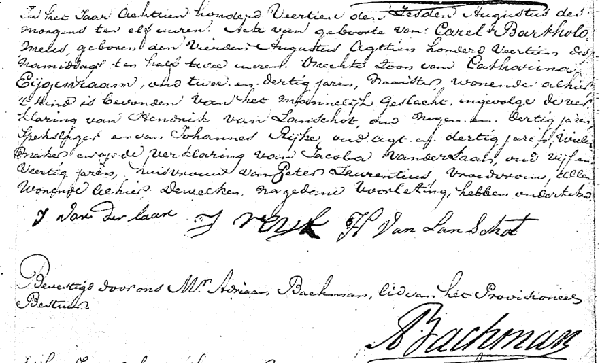 In het Jaar Achtien honderd Veertien den Sesden Augustus des
morgens ten elf uuren. Acte van geboorte van Carel Bartholo
meus, geboren den Vierden Augustus Agttien honderd Veertien des
namiddags ten half twee uuren. Vrachte Zoon van Catharina
Eijgenraam, oud twee en dertig jaren, wonende alhier
't Kind is bevonden van het mannelijk Geslacht, ingevolge de ver
klaring van Hendrik van Lanschot, oud Negen en dertig jaren,
Spekslager en van Johannes Rijke, oud agt en dertig jaren, Wiele
maker en op de verklaring van Jacoba van der Laar, oud vijf en
Veertig jaren, huisvrouw van Peter Laurentius, Vroedvrouw, allen
Wonende Alhier Dewelken, na gedane Voorlezing, hebben onderteekend
J van der laar J ryk H Van Lan Schot
Bevestigd door ons Mr. Adriaan Bachman, lid van het Provisioneel
Bestuur
A Bachman